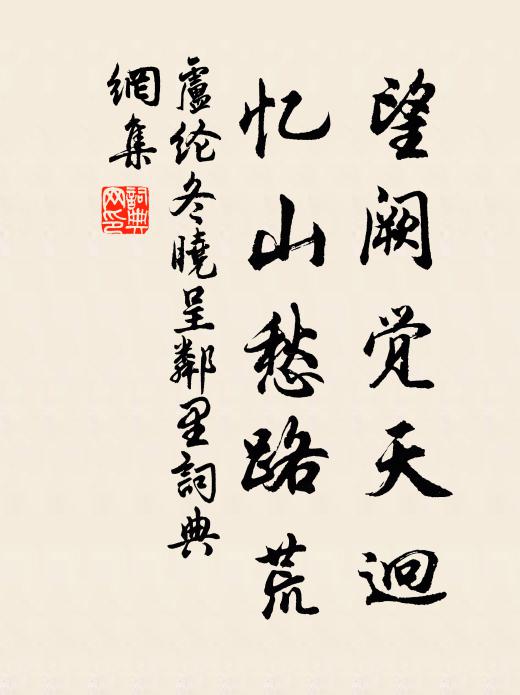 望阙觉天迥
忆山愁路荒
盧纶冬曉呈鄰里詞典
網集
詞典
网印